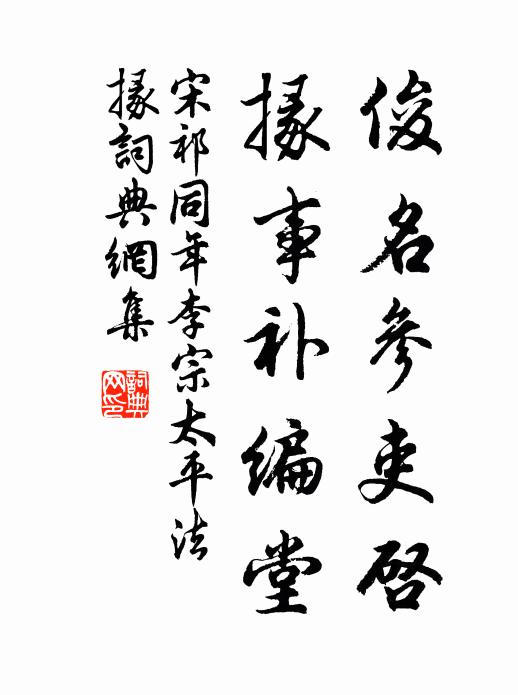 俊名参吏啓
掾事补编堂
宋祁同年李宗太平法
掾詞典網集
詞典网印